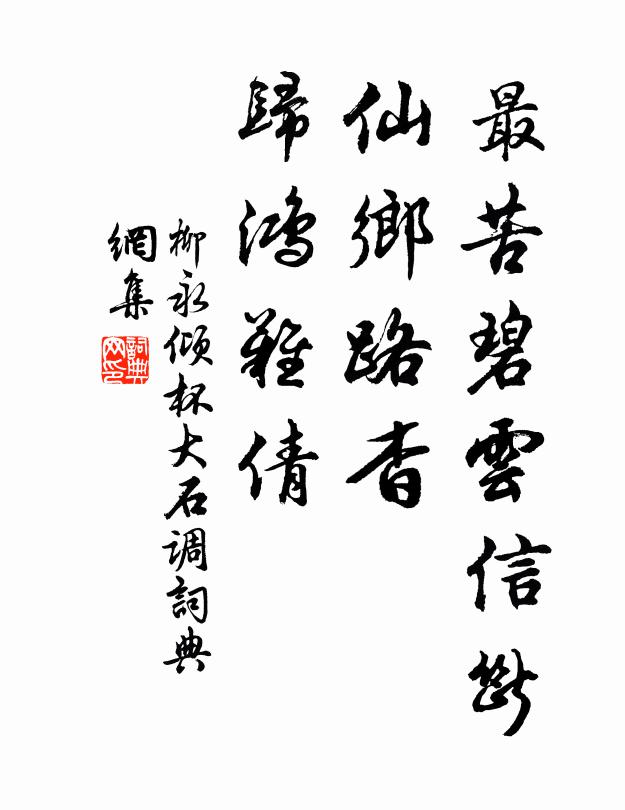 最苦碧雲信斷
仙鄉路杳
歸鴻難倩
柳永傾杯大石調詞典
網集
詞典網印